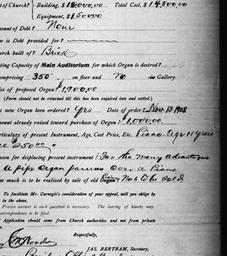 of Church? Building, $13000.00 Total Cost, $14,500.00
Equipment, $1500.00
ount of Debt? None
w is Debt provided for?
hurch built of? Brick
ting Capacity of Main Auditorium for which Organ is desired?
omprising 350 on floor and No in Gallery.
ice of proposed Organ $1,900.00
(Form should not be returned till this has been enquired into and settled.)
new Organ been ordered? Yes Date of order, Nov 13 1908
ount already raised toward purchase of Organ? $1,000.00
rticulars of present Instrument, Age, Cost Price, Etc. Piano. age 11 years
250.00
son for displacing present instrument? For the many advantages
a pipe organ over a Piano
much is to be realized by sale of old Not to be Sold
To facilitate Mr. Carnegie's consideration of your appeal, will you oblige by
Precise answer to each question is necessary. The leaving of blanks may
correspondence to be filed.
Application should come from Church authorities and not from private
Respectfully,
Wood
JAS. BERTRAM, Secretary,